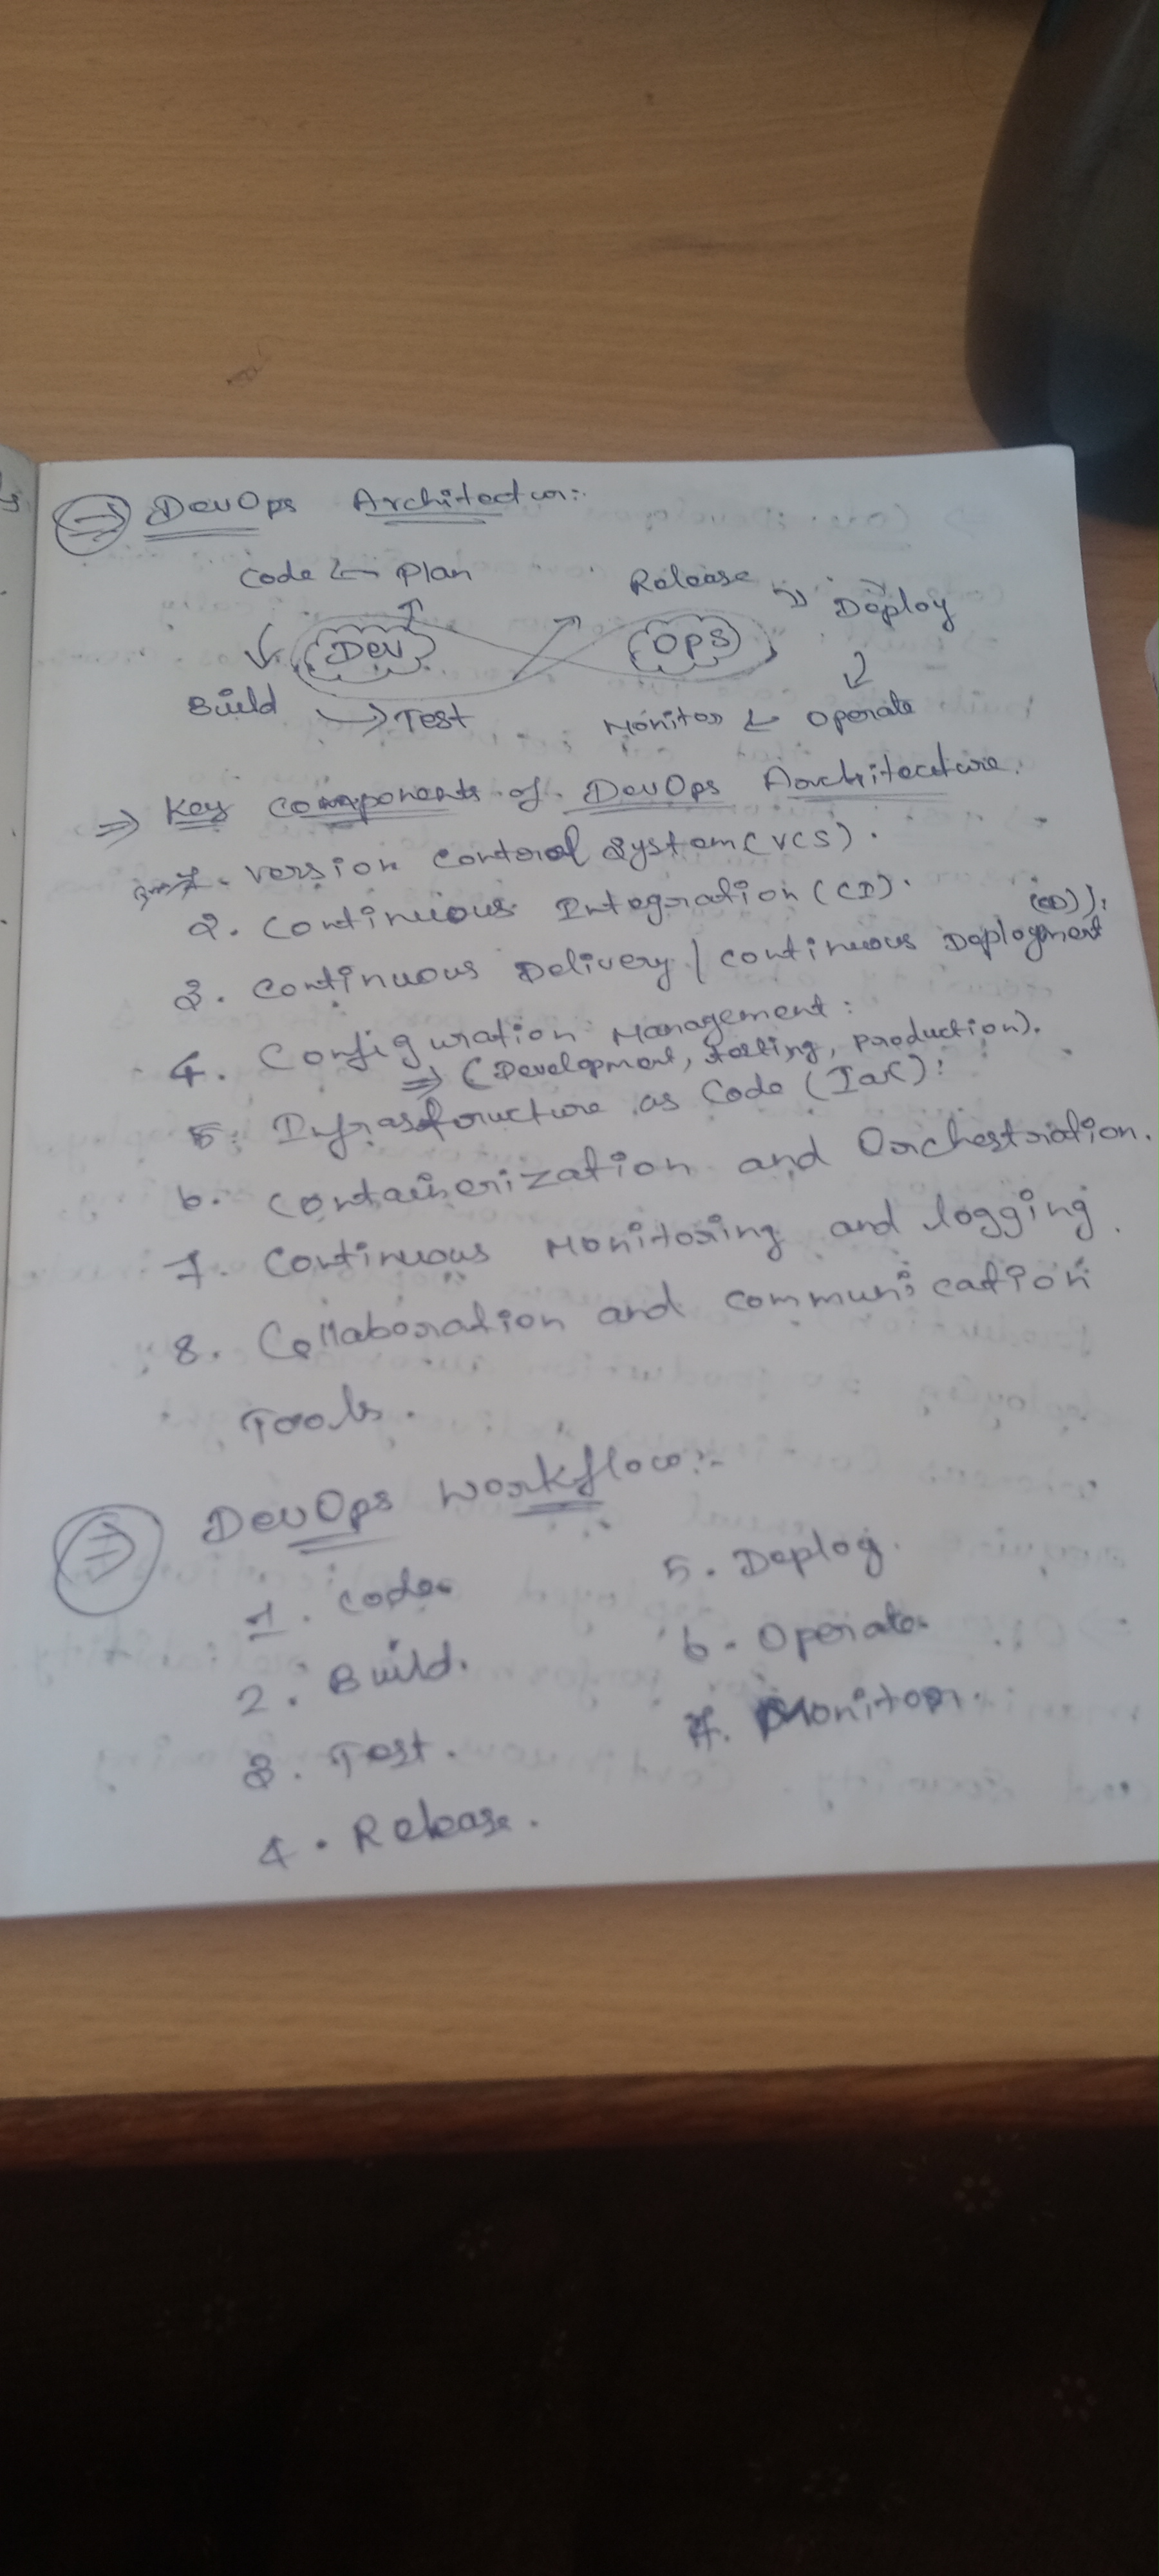 ⇒ DevOps Architectur:-
Code ← Plan
Release → Deploy
Dev
Ops
Build → Test
Monitor ← Operate
⇒ Key Components of DevOps Architecture.
1. Version Control System (VCS).
2. Continuous Integration (CI).
3. Continuous Delivery / Continuous Deployment (CD)):
4. Configuration Management:
⇒ (Development, testing, production).
5. Infrastructure as Code (IaC):
6. Containerization and Orchestration.
7. Continuous Monitoring and logging.
8. Collaboration and communication
Tools.
⇒ DevOps Workflow:-
1. Code.
2. Build.
3. Test.
4. Release.
5. Deploy.
6. Operate.
7. Monitor.